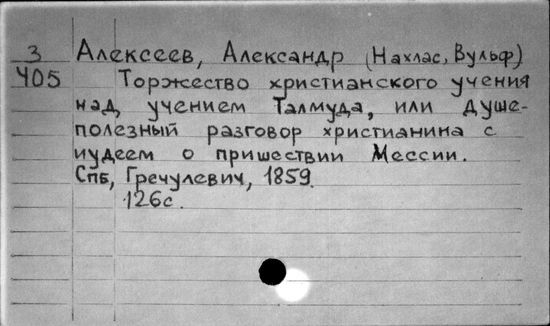 3 Алексеев, Александр (Нахлас, Вульф)
405 Торжество христианского учения
над учением Талмуда, или душе-
полезный разговор христианина с
иудеем о пришествии Мессии.
Спб, Гречулевич, 1859.
126с.